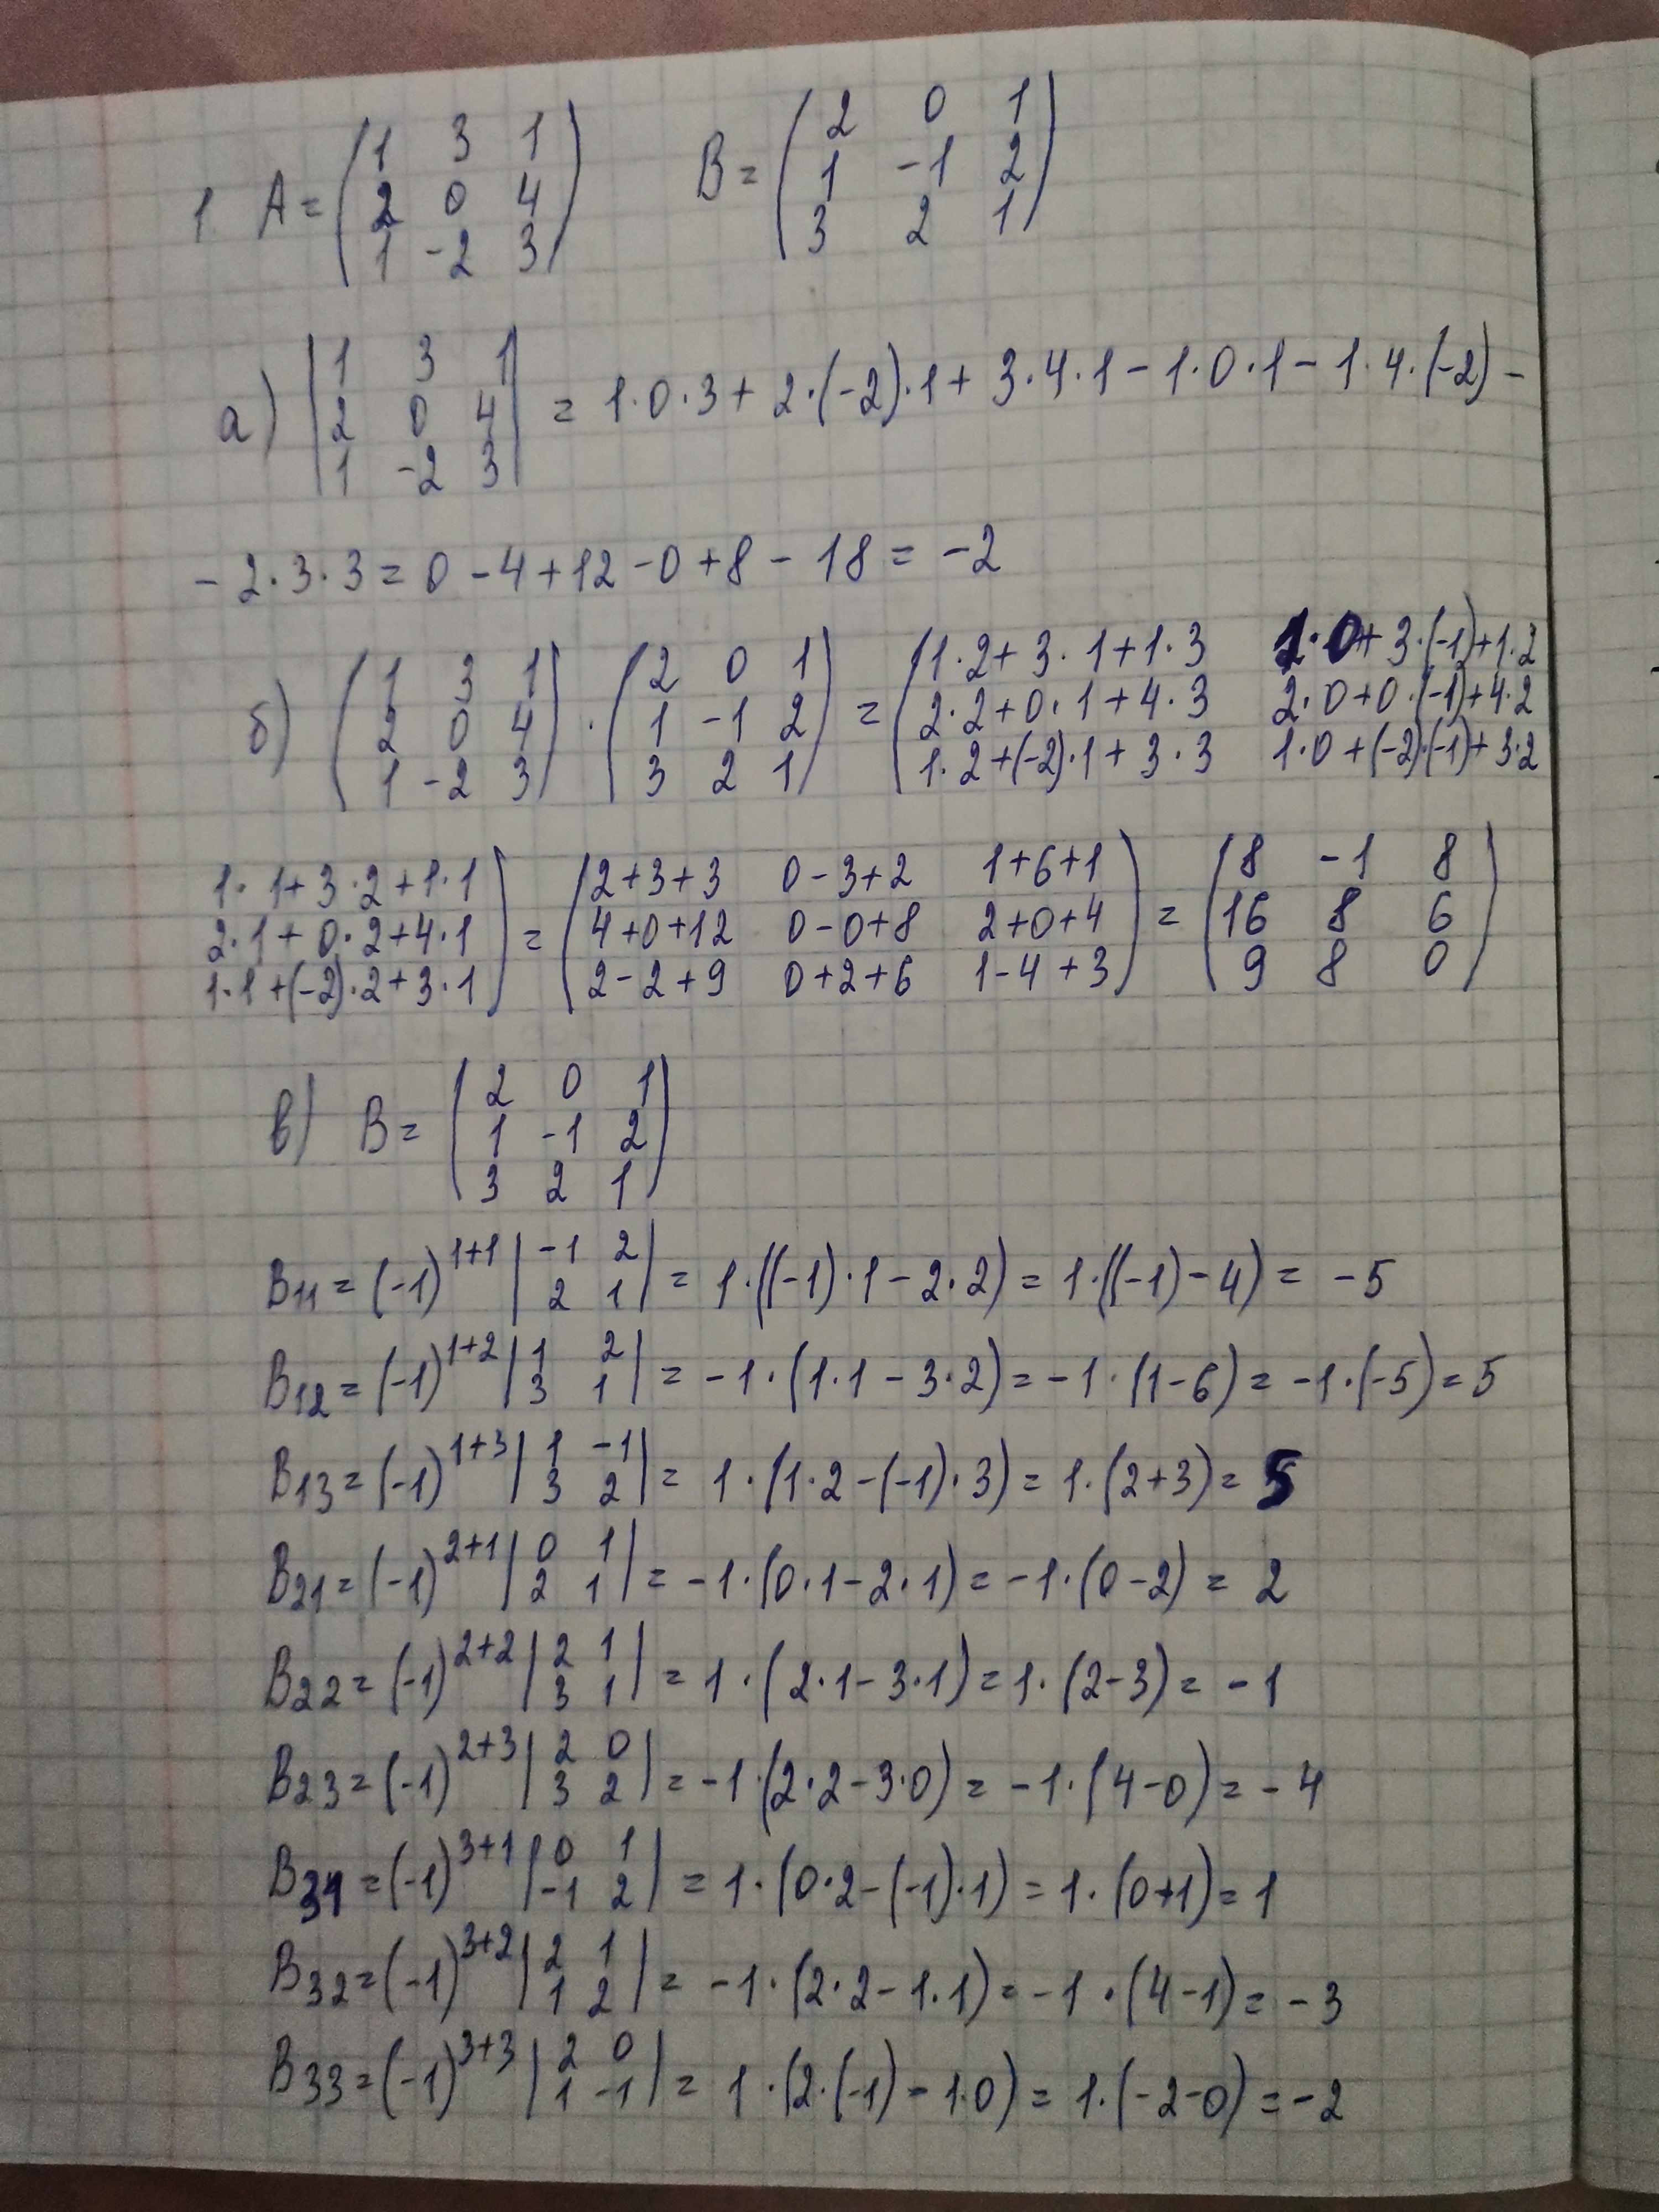 1. A = (1 3 1   B = (2 0 1
2 0 4   1 -1 2
1 -2 3)   3 2 1)
а) |1 3 1
2 0 4
1 -2 3| = 1·0·3 + 2·(-2)·1 + 3·4·1 - 1·0·1 - 1·4·(-2) -
- 2·3·3 = 0 - 4 + 12 - 0 + 8 - 18 = -2
б) (1 3 1   · (2 0 1   = (1·2 + 3·1 + 1·3   1·0 + 3·(-1) + 1·2
2 0 4   1 -1 2   2·2 + 0·1 + 4·3   2·0 + 0·(-1) + 4·2
1 -2 3)   3 2 1)   1·2 + (-2)·1 + 3·3   1·0 + (-2)·(-1) + 3·2
1·1 + 3·2 + 1·1   (2+3+3   0-3+2   1+6+1   (8 -1 8
2·1 + 0·2 + 4·1 = 4+0+12   0-0+8   2+0+4 = 16 8 6
1·1 + (-2)·2 + 3·1)   2-2+9   0+2+6   1-4+3)   9 8 0)
в) B = (2 0 1
1 -1 2
3 2 1)
B11 = (-1)^1+1 |-1 2
2 1| = 1·((-1)·1 - 2·2) = 1·((-1) - 4) = -5
B12 = (-1)^1+2 |1 2
3 1| = -1·(1·1 - 3·2) = -1·(1-6) = -1·(-5) = 5
B13 = (-1)^1+3 |1 -1
3 2| = 1·(1·2 - (-1)·3) = 1·(2+3) = 5
B21 = (-1)^2+1 |0 1
2 1| = -1·(0·1 - 2·1) = -1·(0-2) = 2
B22 = (-1)^2+2 |2 1
3 1| = 1·(2·1 - 3·1) = 1·(2-3) = -1
B23 = (-1)^2+3 |2 0
3 2| = -1·(2·2 - 3·0) = -1·(4-0) = -4
B31 = (-1)^3+1 |0 1
-1 2| = 1·(0·2 - (-1)·1) = 1·(0+1) = 1
B32 = (-1)^3+2 |2 1
1 2| = -1·(2·2 - 1·1) = -1·(4-1) = -3
B33 = (-1)^3+3 |2 0
1 -1| = 1·(2·(-1) - 1·0) = 1·(-2-0) = -2